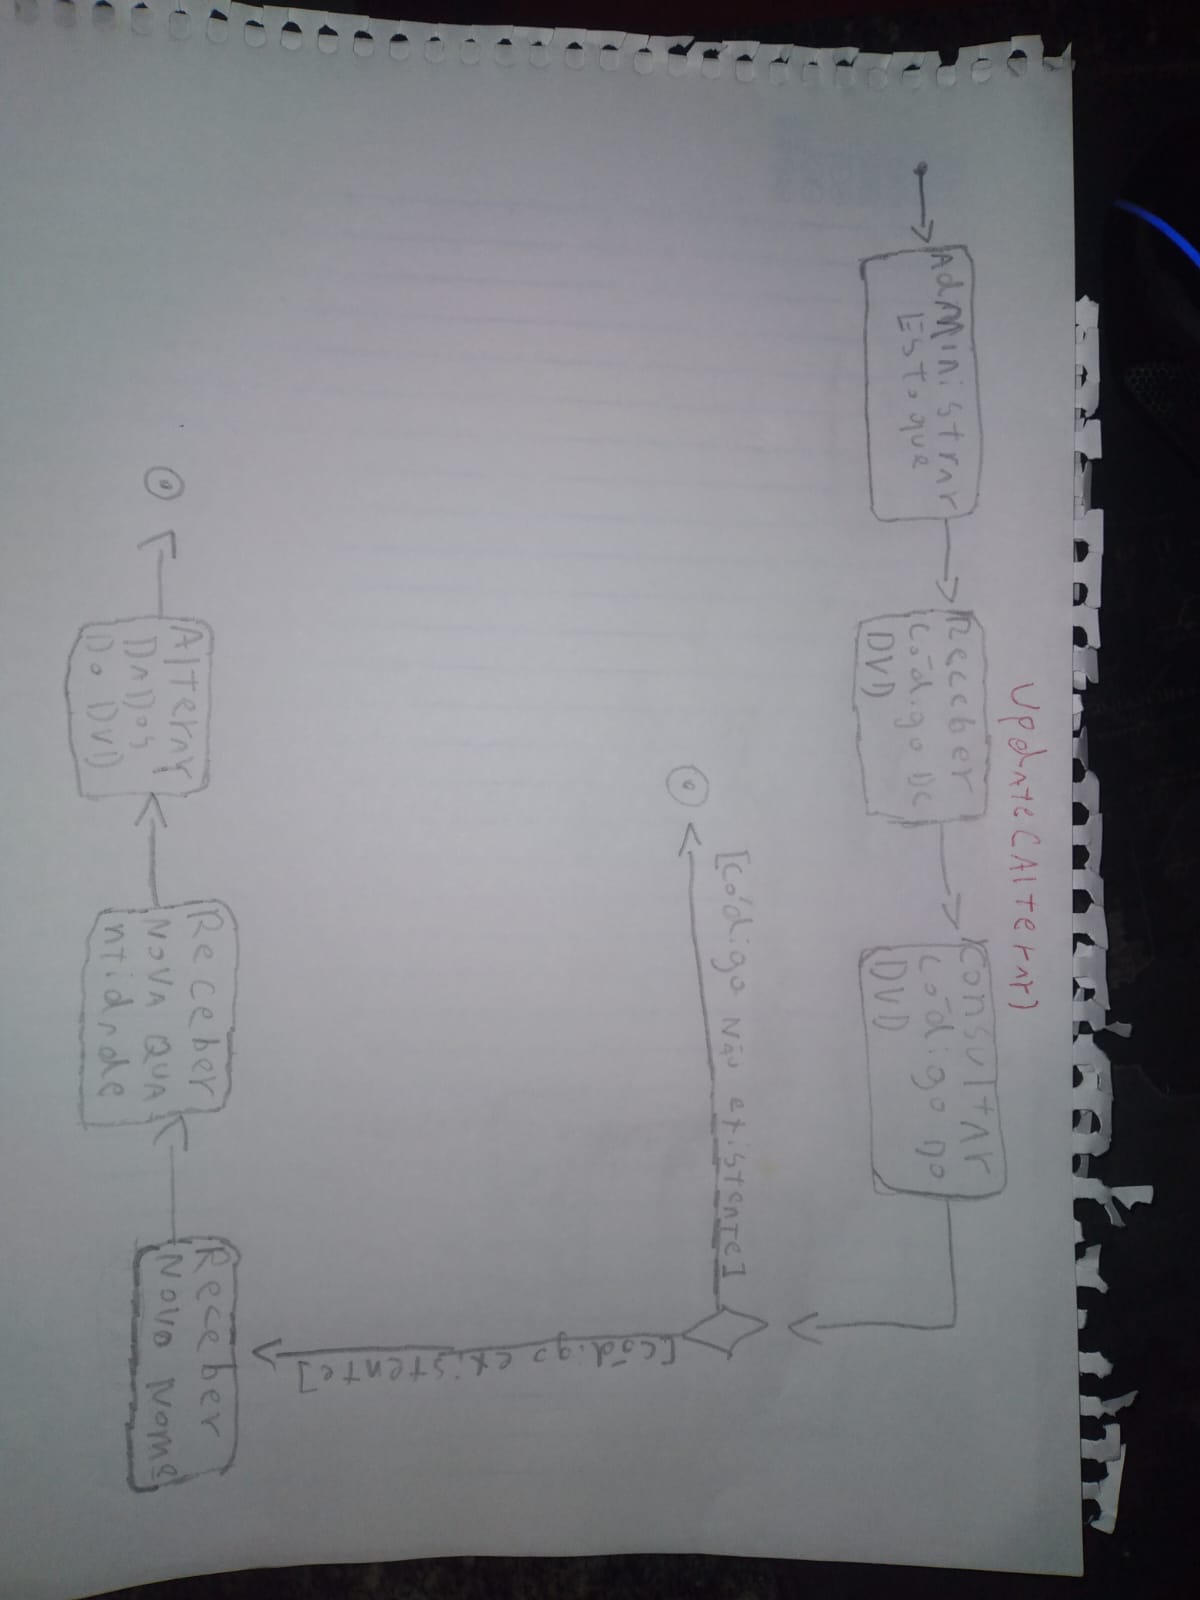 Update(Alterar)
Administrar
Estoque
Receber
Código DE
DVD
Consultar
Código DO
DVD
[Código NÃO existente]
[Código existente]
Receber
NOVO Nome
Receber
NOVA QUA
ntidade
Alterar
DADOS
DO DVD